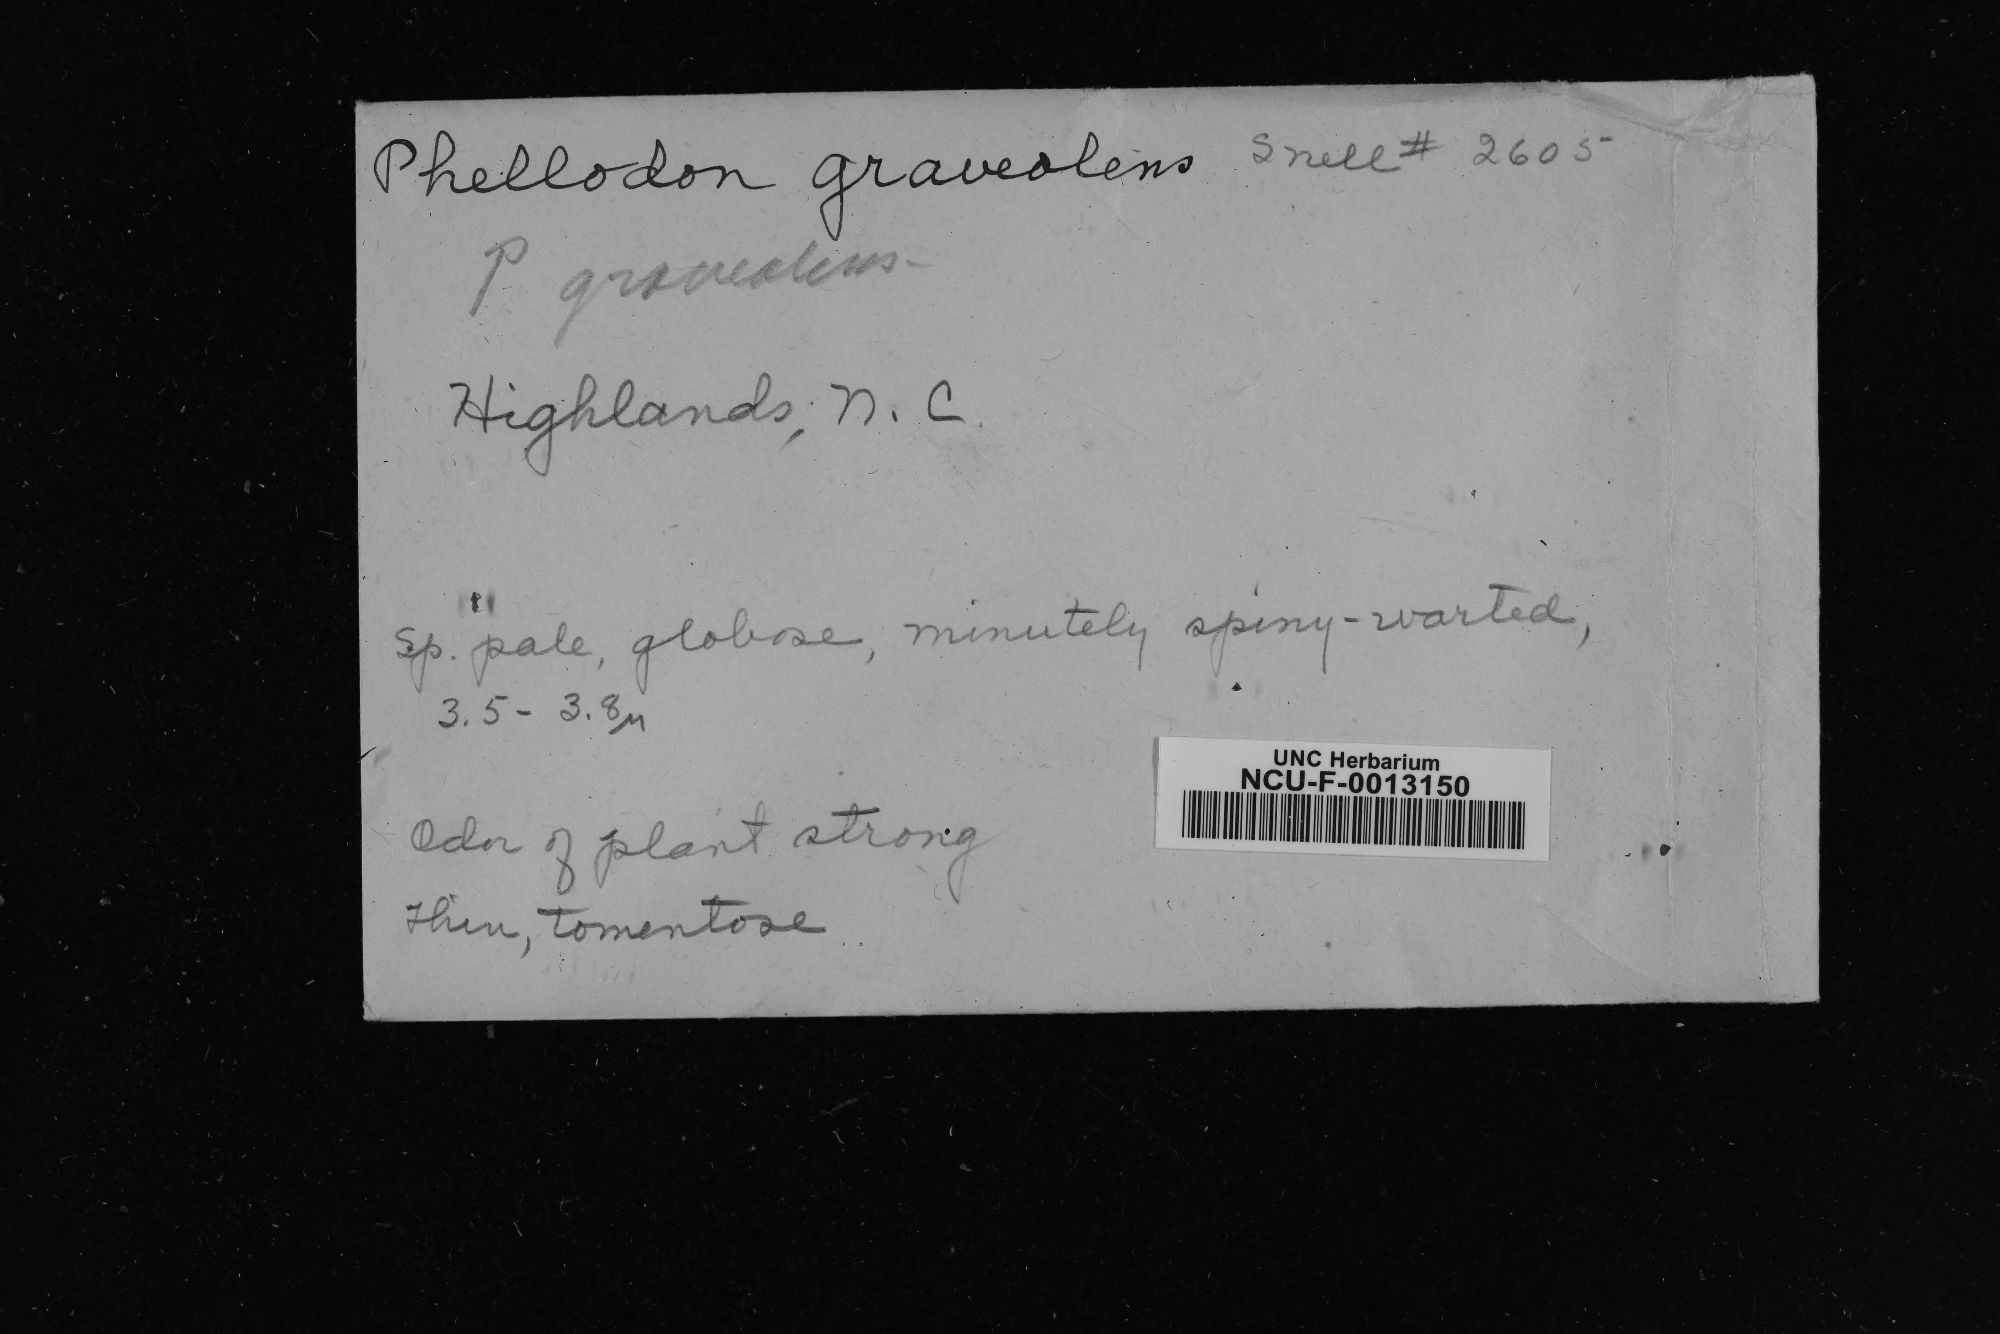 Phellodon graveolens Snell # 2605
P graveolens
Highlands, N. C.
Sp. pale, globose, minutely spiny-warted,
3.5 - 3.8µ
UNC Herbarium
NCU-F-0013150
Odor of plant strong
Thin, tomentose